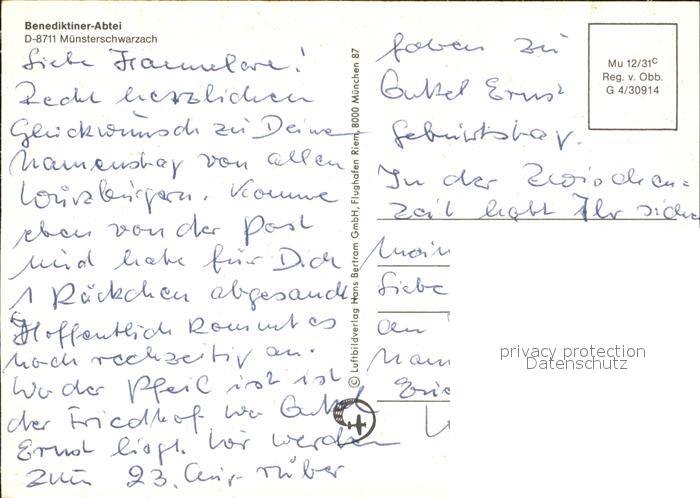 Benediktiner-Abtei
D-8711 Münsterschwarzach
Liebe Hannelore!
Recht herzlichen
Glückwunsch zu Deinem
Namenstag von allen
Würzbürgern. Komme
eben von der Post
und habe für Dich
1 Päckchen abgesandt.
Hoffentlich kommt es
noch rechtzeitig an.
Wo der Pfeil ist ist
der Friedhof wo Onkel
Ernst liegt. Wir werden
zum 23. Aug. rüber
© Luftbildverlag Hans Bertram GmbH, Flughafen Riem, 8000 München 87
Mu 12/31c
Reg. v. Obb.
G 4/30914
fahren zu
Onkel Ernst
Geburtstag.
In der Zwischen=
zeit habt Ihr sicher
Liebe
an
privacy protection
Datenschutz